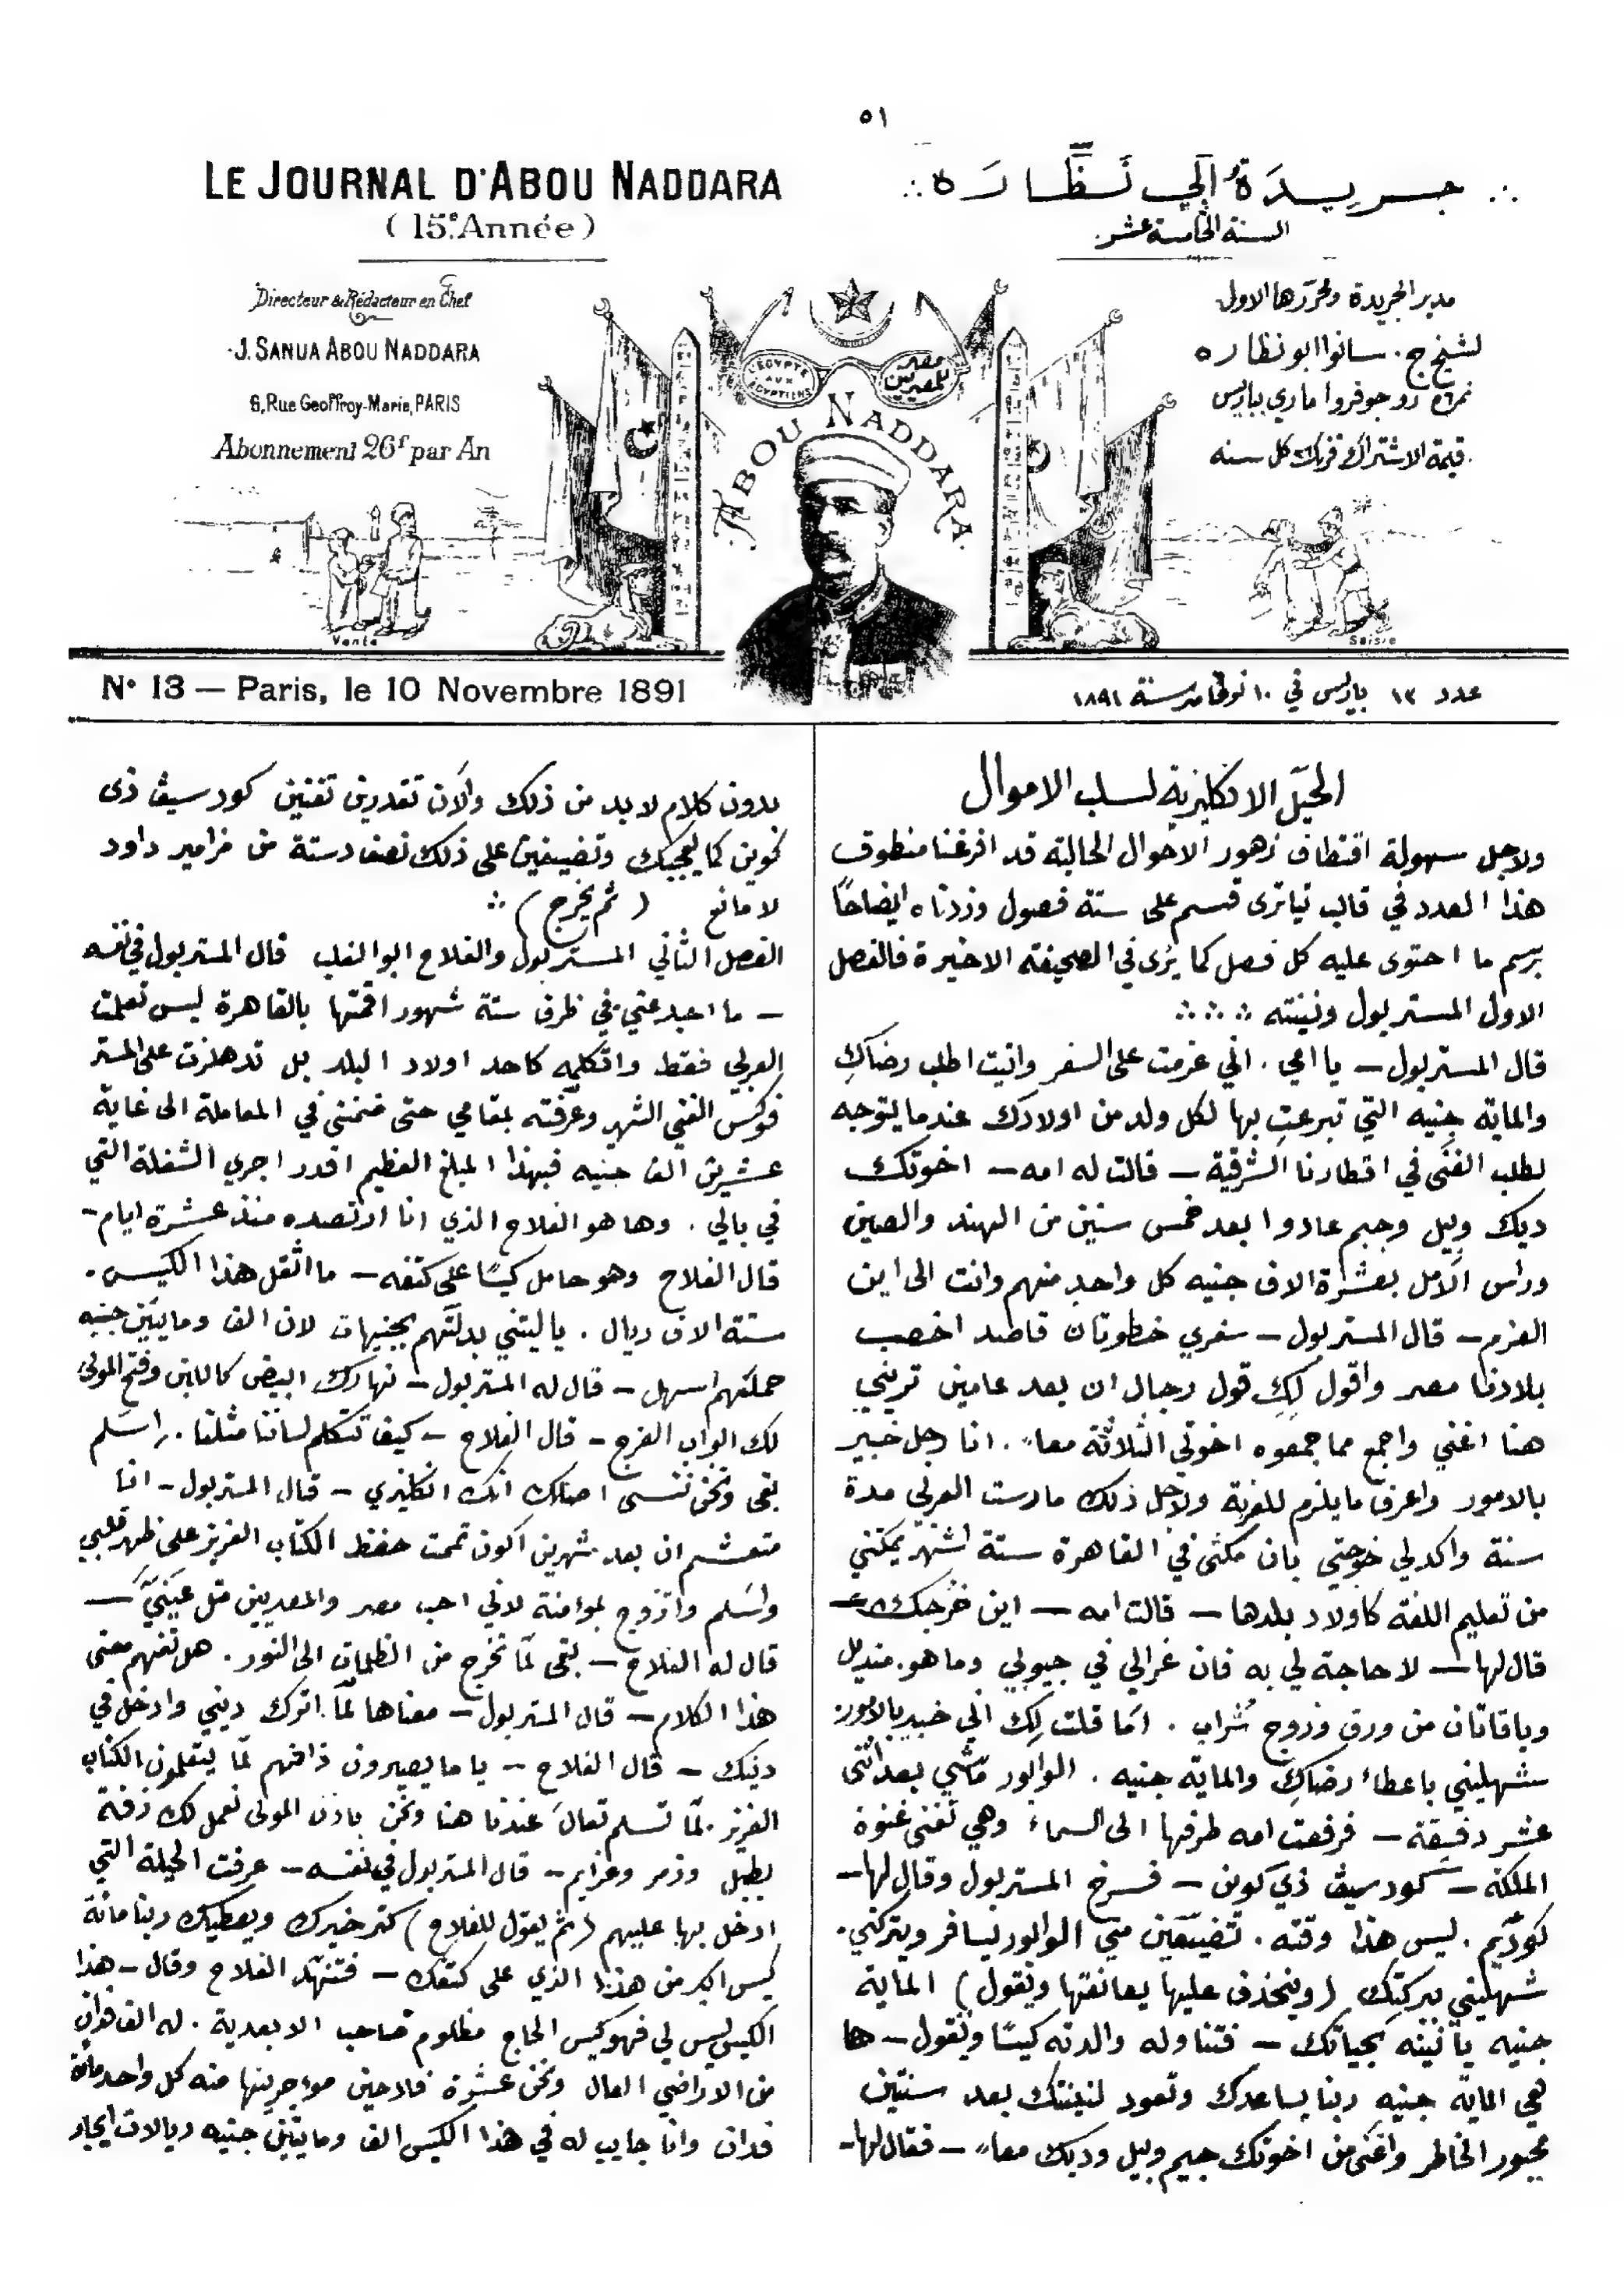 ٥١
LE JOURNAL D'ABOU NADDARA
(15e. Année)
Directeur & Rédacteur en Chef
J. SANUA ABOU NADDARA
6, Rue Geoffroy-Marie, PARIS
Abonnement 26f par An
جريدة ابي نظارة
السنة الخامسة عشر
مدير الجريدة ومحررها الاول
لشيخ ج. سانوا ابو نظاره
نمرة ٦ رو جوفروا ماري بباريس
قيمة الاشتراك فرنك كل سنه
L'EGYPTE AUX EGYPTIENS
مصر للمصريين
ABOU NADDARA
Vente
Saisie
No 13 — Paris, le 10 Novembre 1891
عدد ١٣ باريس في ١٠ نوفمبر سنة ١٨٩١
الحيل الانكليزية لسلب الاموال
ولاجل سهولة اقتطاف زهور الاحوال الحالية قد افرغنا منطوق
هذا العدد في قالب تياترى قسم على ستة فصول وزدناه ايضاحًا
برسم ما احتوى عليه كل فصل كما يُرى في الصحيفة الاخيرة فالفصل
الاول المستر بول ونينته
قال المستر بول — يا امي . اني عزمت على السفر واتيت اطلب رضاكِ
والماية جنيه التي تبرعتِ بها لكل ولد من اولادك عندما يتوجه
لطلب الغنى في اقطارنا الشرقية — قالت له امه — اخوتك
ديك وبيل وجيم عادوا بعد خمس سنين من الهند والصين
وراس الامل بعشرة الاف جنيه كل واحدٍ منهم وانت الى اين
العزم — قال المستر بول — سفري خطوتان قاصد اخصب
بلادنا مصر واقول لكِ قول رجال ان بعد عامين تريني
هنا اغني واجمع مما جمعوه اخوتي الثلاثة معاً . انا رجل خبير
بالامور واعرف ما يلزم للغربة ولاجل ذلك مارست العربي مدة
سنة واكد لي خوجتي بان مكثى في القاهرة ستة اشهر يمكنني
من تعليم اللغة كاولاد بلدها — قالت امه — اين خرجك —
قال لها — لا حاجة لي به فان غرالي في جيوبي وما هو . منديل
وياقاتان من ورق وزوج شُراب . اما قلت لكِ اني خبير بالامور
شهليني باعطاء رضاكِ والماية جنيه . الوابور ماشي بعد اثنى
عشر دقيقة — فرفعت امه طرفها الى السماء وهي تغنى غنوة
الملكة — كود سيڤ ذي كوين — فسرخ المستر بول وقال لها —
كودّيم . ليس هذا وقته . تضيّعين مني الوابور يسافر ويتركني .
شهليني ببركتك (وينحذف عليها يعانقها وتقول) الماية
جنيه يا نينه بحياتك — فتناوله والدته كيسًا وتقول — ها
هي الماية جنيه ربنا يساعدك وتعود لنينتك بعد سنتين
مجبور الخاطر واغنى من اخوتك جيم وبيل وديك معاً — فقال لها —
بدون كلام لا بد من ذلك والآن تقدرين تغنين كود سيڤ ذى
كوين كما يعجبك وتضيفين على ذلك نصف دستة من مزامير داود
لا مانع (ثم يخرج)
الفصل الثاني المستر بول والفلاح ابو الغلب قال المستر بول في نفسه
— ما ابدعني في ظرف ستة شهور اقمتها بالقاهرة ليس تعلمت
العربي فقط واتكلمه كاحد اولاد البلد بل تدهلزت على المستر
فوكس الغني الشهير وعرّفته بمقامي حتى ضمنني في المعاملة الى غاية
عشرين الف جنيه فبهذا المبلغ العظيم اقدر اجري الشغلة التي
في بالي . وها هو الفلاح الذي انا ارتصده منذ عشرة ايام —
قال الفلاح وهو حامل كيسًا على كتفه — ما اثقل هذا الكيس .
ستة الاف ريال . يا ليتني بدلتهم بجنيهات لان الف ومايتين جنيه
حملتهم اسهل — قال له المستر بول — نهارك ابيض كاللبن وفتح المولى
لك ابواب الفرج — قال الفلاح — كيف تتكلم لساننا مثلنا . اسلم
بقى ونحن ننسى اصلك انك انكليزي — قال المستر بول — انا
متعشم ان بعد شهرين اكون تممت حفظ الكتاب العزيز على ظهر قلبي
واسلم واتزوج بمؤمنة لاني احب مصر والمصريين مثل عينيّ —
قال له الفلاح — بقى لمّا تخرج من الظلمات الى النور . هل تفهم معنى
هذا الكلام — قال المستر بول — معناها لمّا اترك ديني وادخل في
دينك — قال الفلاح — يا ما يصيرون ذافهم لمّا يتعلمون الكتاب
العزيز . لمّا تسلم تعالَ عندنا هنا ونحن باذن المولى نعمل لك زفة
بطبل وزمر وعزايم — قال المستر بول في نفسه — عرفت الحيلة التي
ادخل بها عليهم (ثم يقول للفلاح) كتر خيرك ويعطيك ربنا ماية
كيس اكبر من هذا الذي على كتفك — فتنهّد الفلاح وقال — هذا
الكيس ليس لي فهو كيس الحاج مظلوم صاحب الابعدية . له الف فدان
من الاراضي العال ونحن عشرة فلاحين موءجرينها منه كل واحد ماية
فدان وانا جايب له في هذا الكيس الف ومايتين جنيه ريالات ايجار